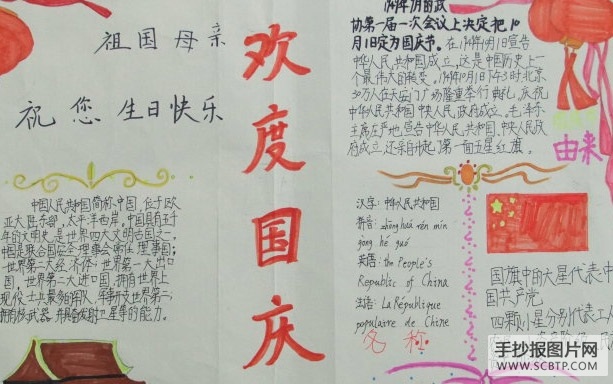 祖国母亲
祝您生日快乐
欢度国庆
中国人民共和国简称中国,位于欧
亚大陆东部,太平洋西岸,中国具有五千
年的文明史,是世界四大文明古国之一,
中国是联合国安全理事会常任理事国,
世界第二大经济体,世界第一大进口
国,世界第二大进口国,拥有世界上
现役士兵最多的军队,军事开支世界第二,
拥有核武器,并具备发射卫星等的能力。
1949年10月的政
协第一届一次会议上决定把10
月1日定为国庆节。在1949年10月1日宣告
中华人民共和国成立,这是中国历史上一
个最伟大的转变。1949年10月1日下午3时北京
30万人在天安门广场隆重举行典礼,庆祝
中华人民共和国中央人民政府成立。毛泽东
主席庄严地宣告中华人民共和国、中央人民政
府成立,还亲自升起了第一面五星红旗。
由来
汉字:中华人民共和国
拼音:zhōng huá rén mín
gòng hé guó
英语:the People's
Republic of China
法语:La République
populaire de Chine
名称
国旗中的大星代表中
国共产党
四颗小星分别代表工人
手抄报图片网
WWW.SCBTP.COM